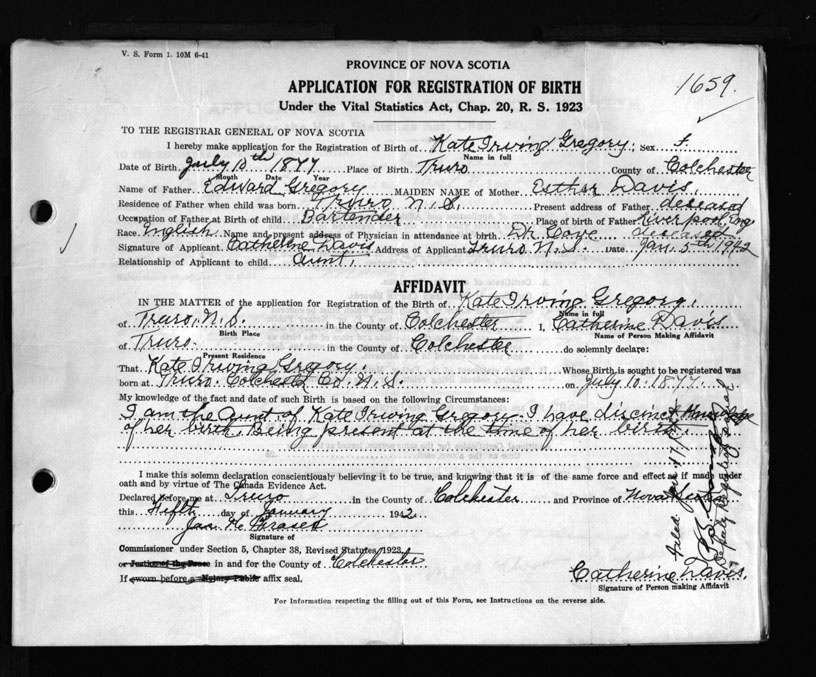 V. S. Form 1. 10M 6-41
PROVINCE OF NOVA SCOTIA
APPLICATION FOR REGISTRATION OF BIRTH
Under the Vital Statistics Act, Chap. 20, R. S. 1923
1659.
TO THE REGISTRAR GENERAL OF NOVA SCOTIA
I hereby make application for the Registration of Birth of Kate Irving Gregory; Sex f.
Name in full
Date of Birth July 10th 1877 Place of Birth Truro County of Colchester
Month Date Year
Name of Father Edward Gregory MAIDEN NAME of Mother Esther Davis.
Residence of Father when child was born Truro N.S. Present address of Father deceased
Occupation of Father at Birth of child Bartender Place of birth of Father Liverpool, Eng
Race English Name and present address of Physician in attendance at birth Dr. Cove deceased
Signature of Applicant Catherine Davis Address of Applicant Truro N.S. Date Jan. 5th 1942
Relationship of Applicant to child Aunt.
AFFIDAVIT
IN THE MATTER of the application for Registration of the Birth of Kate Irving Gregory.
Name in full
of Truro, N.S. in the County of Colchester I, Catherine Davis
Birth Place Name of Person Making Affidavit
of Truro in the County of Colchester do solemnly declare:
Present Residence
That Kate Irving Gregory. Whose Birth is sought to be registered was
born at Truro Colchester Co. N.S. on July 10. 1877.
My knowledge of the fact and date of such Birth is based on the following Circumstances:
I am the Aunt of Kate Irving Gregory. I have discinct Knowledge
of her birth. Being present at the time of her birth.
I make this solemn declaration conscientiously believing it to be true, and knowing that it is of the same force and effect as if made under
oath and by virtue of The Canada Evidence Act.
Declared before me at Truro in the County of Colchester and Province of Nova Scotia
this Fifth day of January 1942
Signature of
Commissioner under Section 5, Chapter 38, Revised Statutes 1923.
or Justice of the Peace in and for the County of Colchester
If sworn before a Notary Public affix seal.
Catherine Davis.
Signature of Person making Affidavit
For Information respecting the filling out of this Form, see Instructions on the reverse side.
Filed Jan
Deputy Registrar General